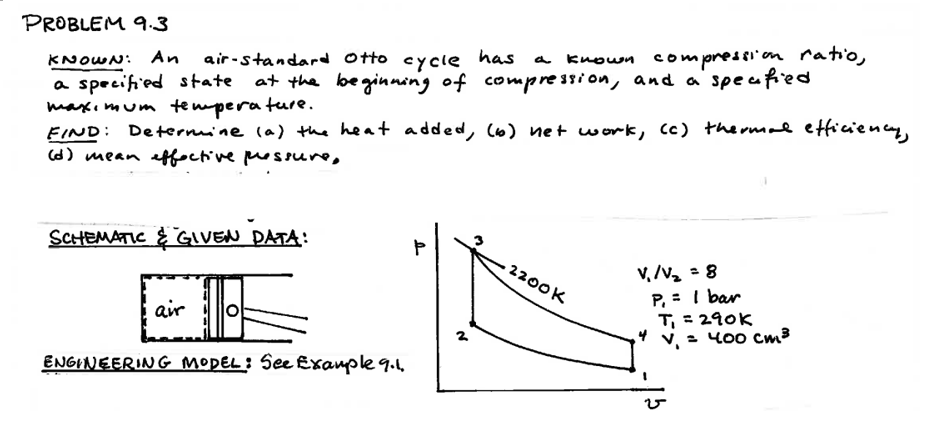 PROBLEM 9.3
KNOWN: An air-standard Otto cycle has a known compression ratio,
a specified state at the beginning of compression, and a specified
maximum temperature.
FIND: Determine (a) the heat added, (b) net work, (c) thermal efficiency,
(d) mean effective pressure.
SCHEMATIC & GIVEN DATA:
air
ENGINEERING MODEL: See Example 9.1.
p
3
2200K
2
4
1
v
V₁/V₂ = 8
P₁ = 1 bar
T₁ = 290K
V₁ = 400 cm³